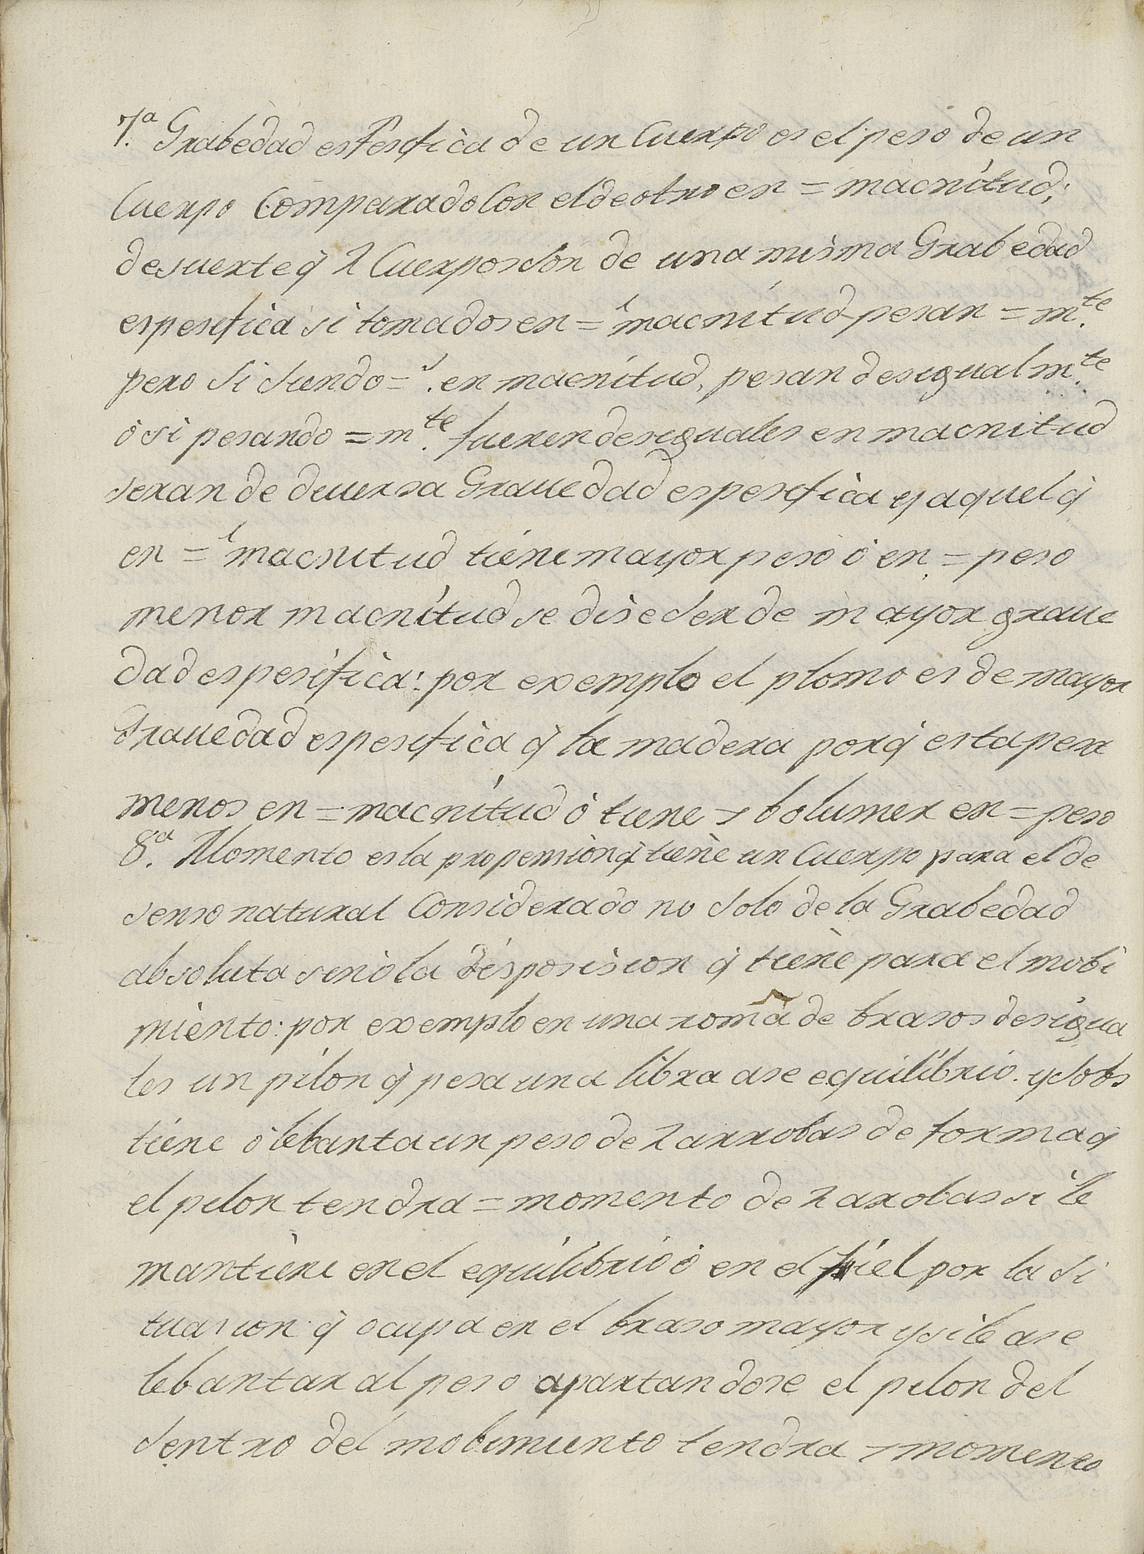 7.ª Grabedad espesifica de un Cuerpo es el peso de un
Cuerpo Comparado Con el de otro en = macnitud;
de suerte q̃ 2 Cuerpos son de una misma Grabedad
espesifica si tomados en = l macnitud pesan = m.te
pero si siendo = s. en macnitud, pesan desigual m.te
ò si pesando = m.te fueren desiguales en macnitud
seran de diuersa Grauedad espesifica y aquel q̃
en = l macnitud tiene mayor peso ò en = peso
menor macnitud se dise ser de mayor graue
dad espesifica: por exemplo el plomo es de mayor
Grauedad espesifica q̃ la madera porq̃ esta pesa
menos en = macnitud ò tiene + bolumen en = peso
8.ª Momento es la propension q̃ tiene un Cuerpo para el de
senso natural Considerado no solo de la Grabedad
absoluta sino la disposision q̃ tiene para el mobi
miento: por exemplo en una romã de brasos desigua
les un pilon q̃ pesa una libra ase equilibrio. y sobs
tiene ò lebanta un peso de 2 arrobas de forma q̃
el pilon tendra = momento de 2 arobas si le
mantiene en el equilibrio ò en el fiel por la si
tuasion q̃ ocupa en el braso mayor y si le ase
lebantar al peso apartandose el pilon del
sentro del mobimiento tendra + momento